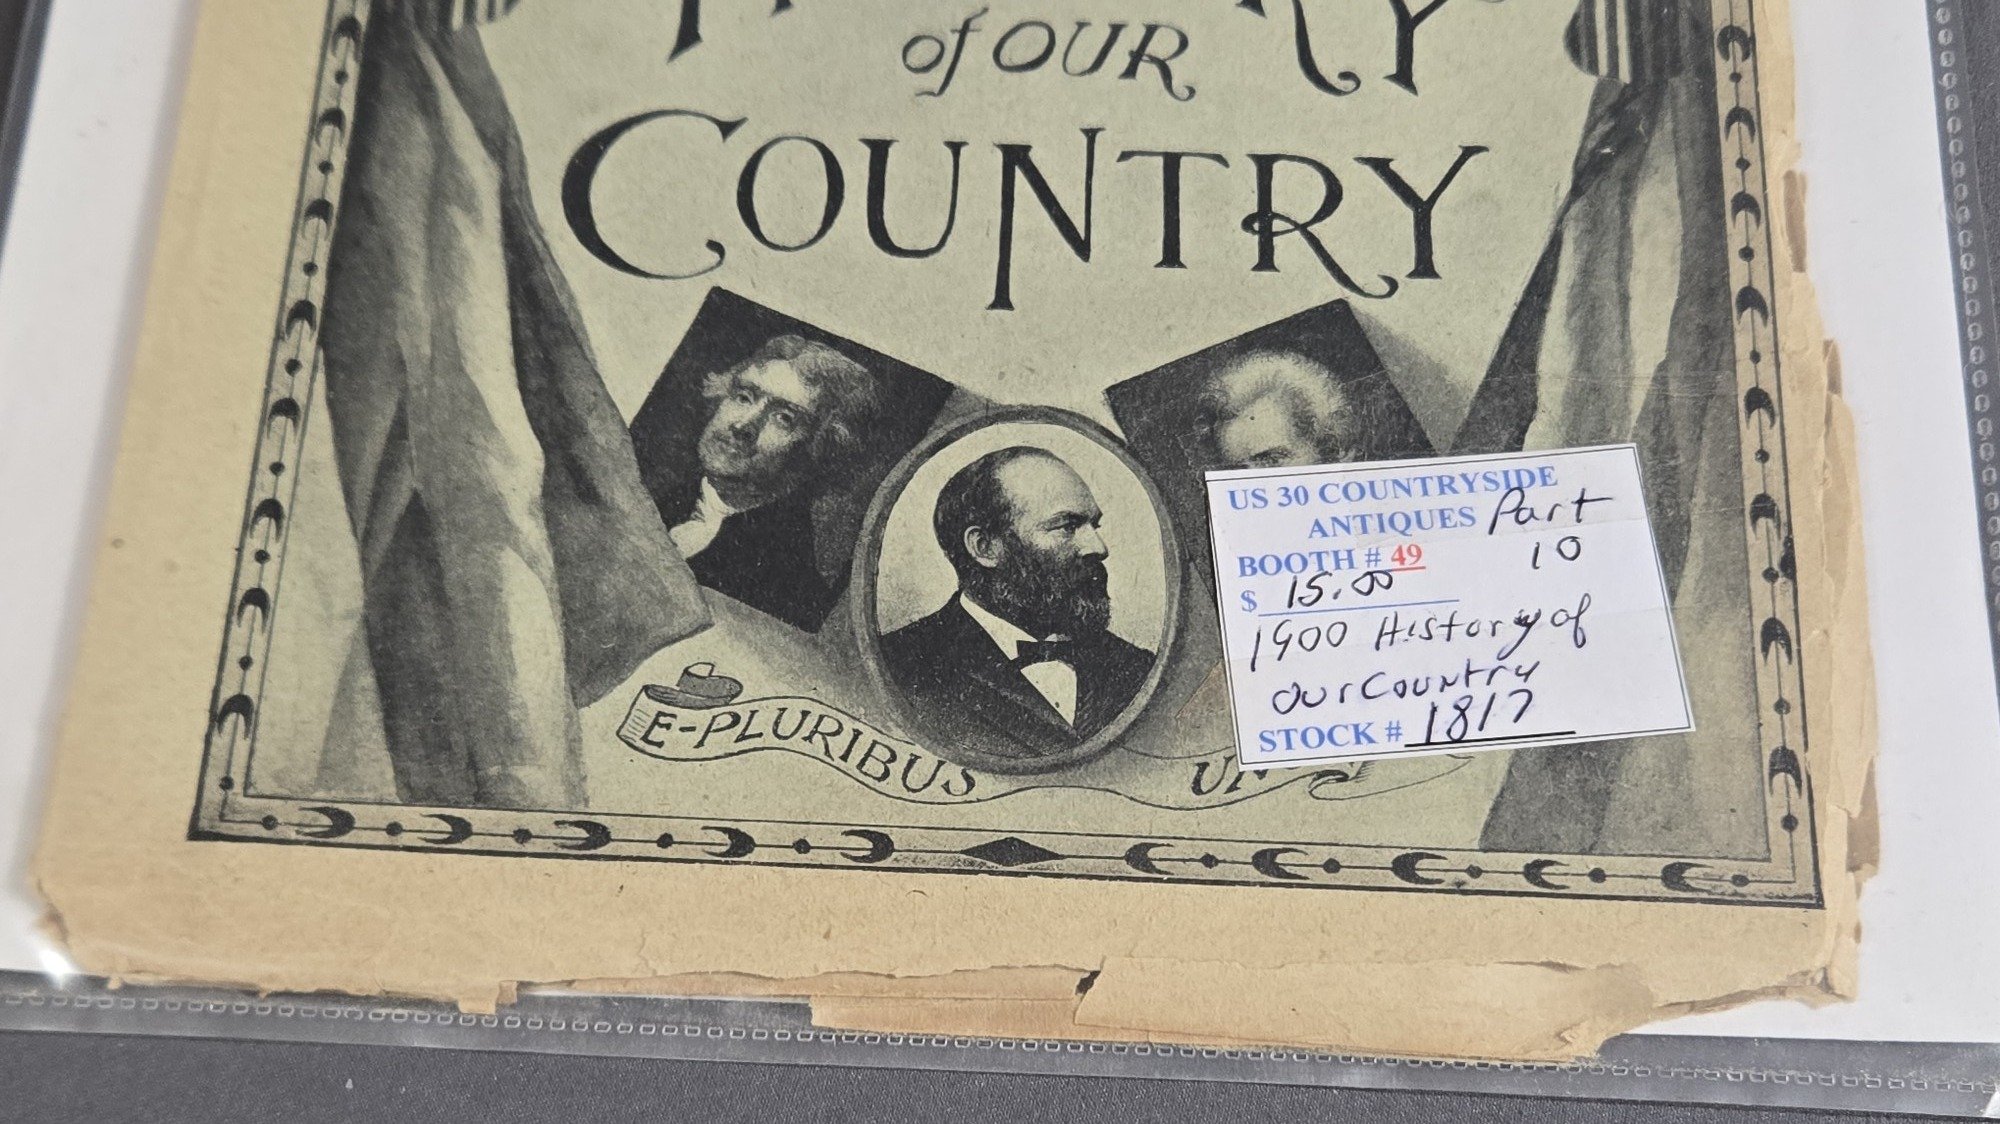 of OUR
COUNTRY
E-PLURIBUS
US 30 COUNTRYSIDE
ANTIQUES Part
BOOTH # 49 10
$ 15.00
1900 History of
Our Country
STOCK # 1817